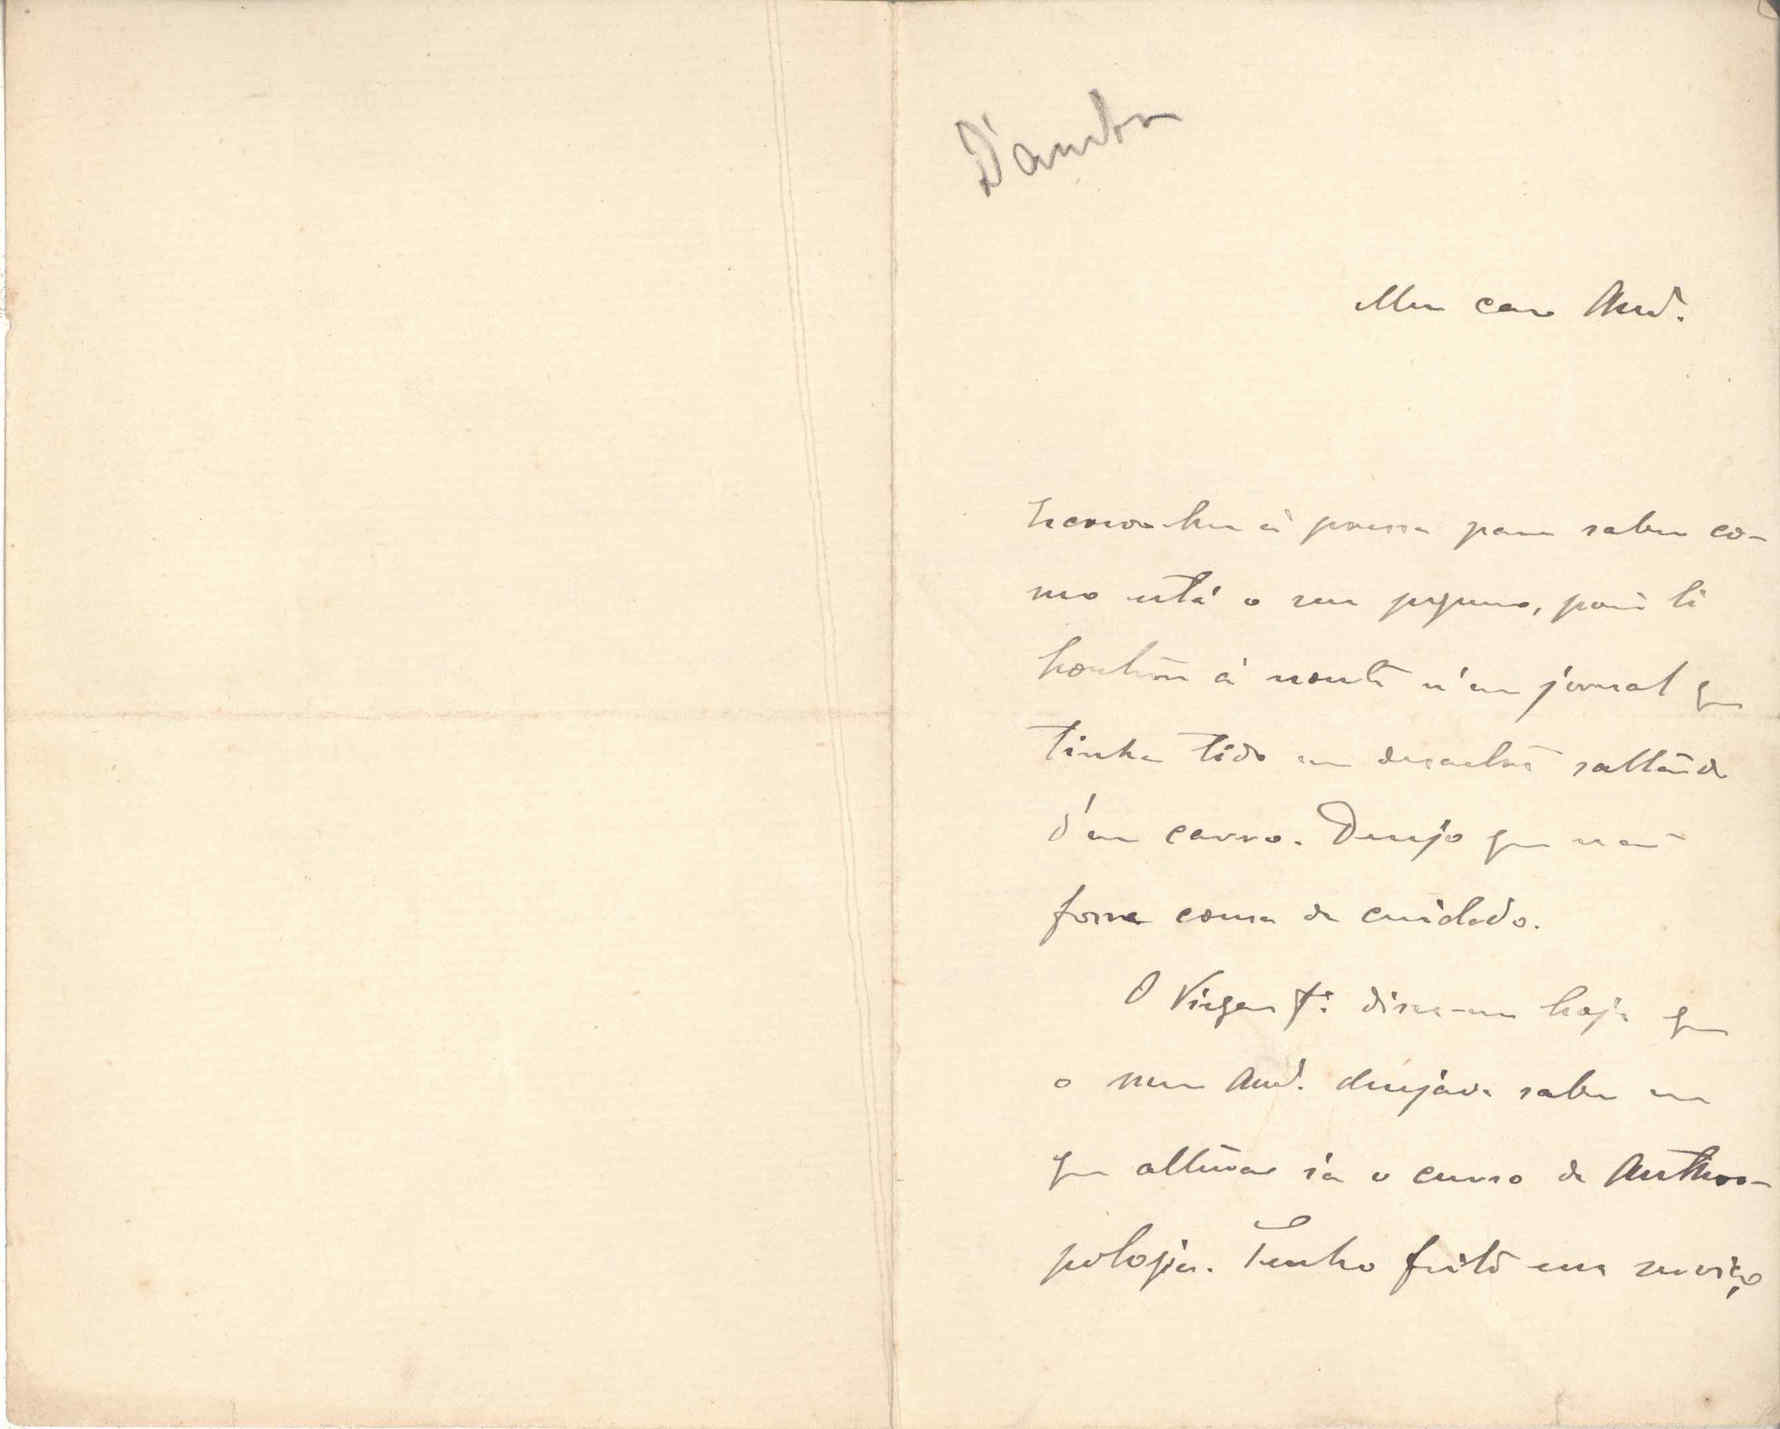 Meu caro Am.º
Escrevo-lhe á pressa para saber co-
mo está o seu pequeno, pois li
hontem á noute n'um jornal que
tinha tido um desastre saltando
d'um carro. Desejo que não
fosse cousa de cuidado.
O Virgem f.: disse-me hoje que
o meu Am.º desejava saber em
que alturas ia o curso de Anthro-
pologia. Tenho feito esse serviço